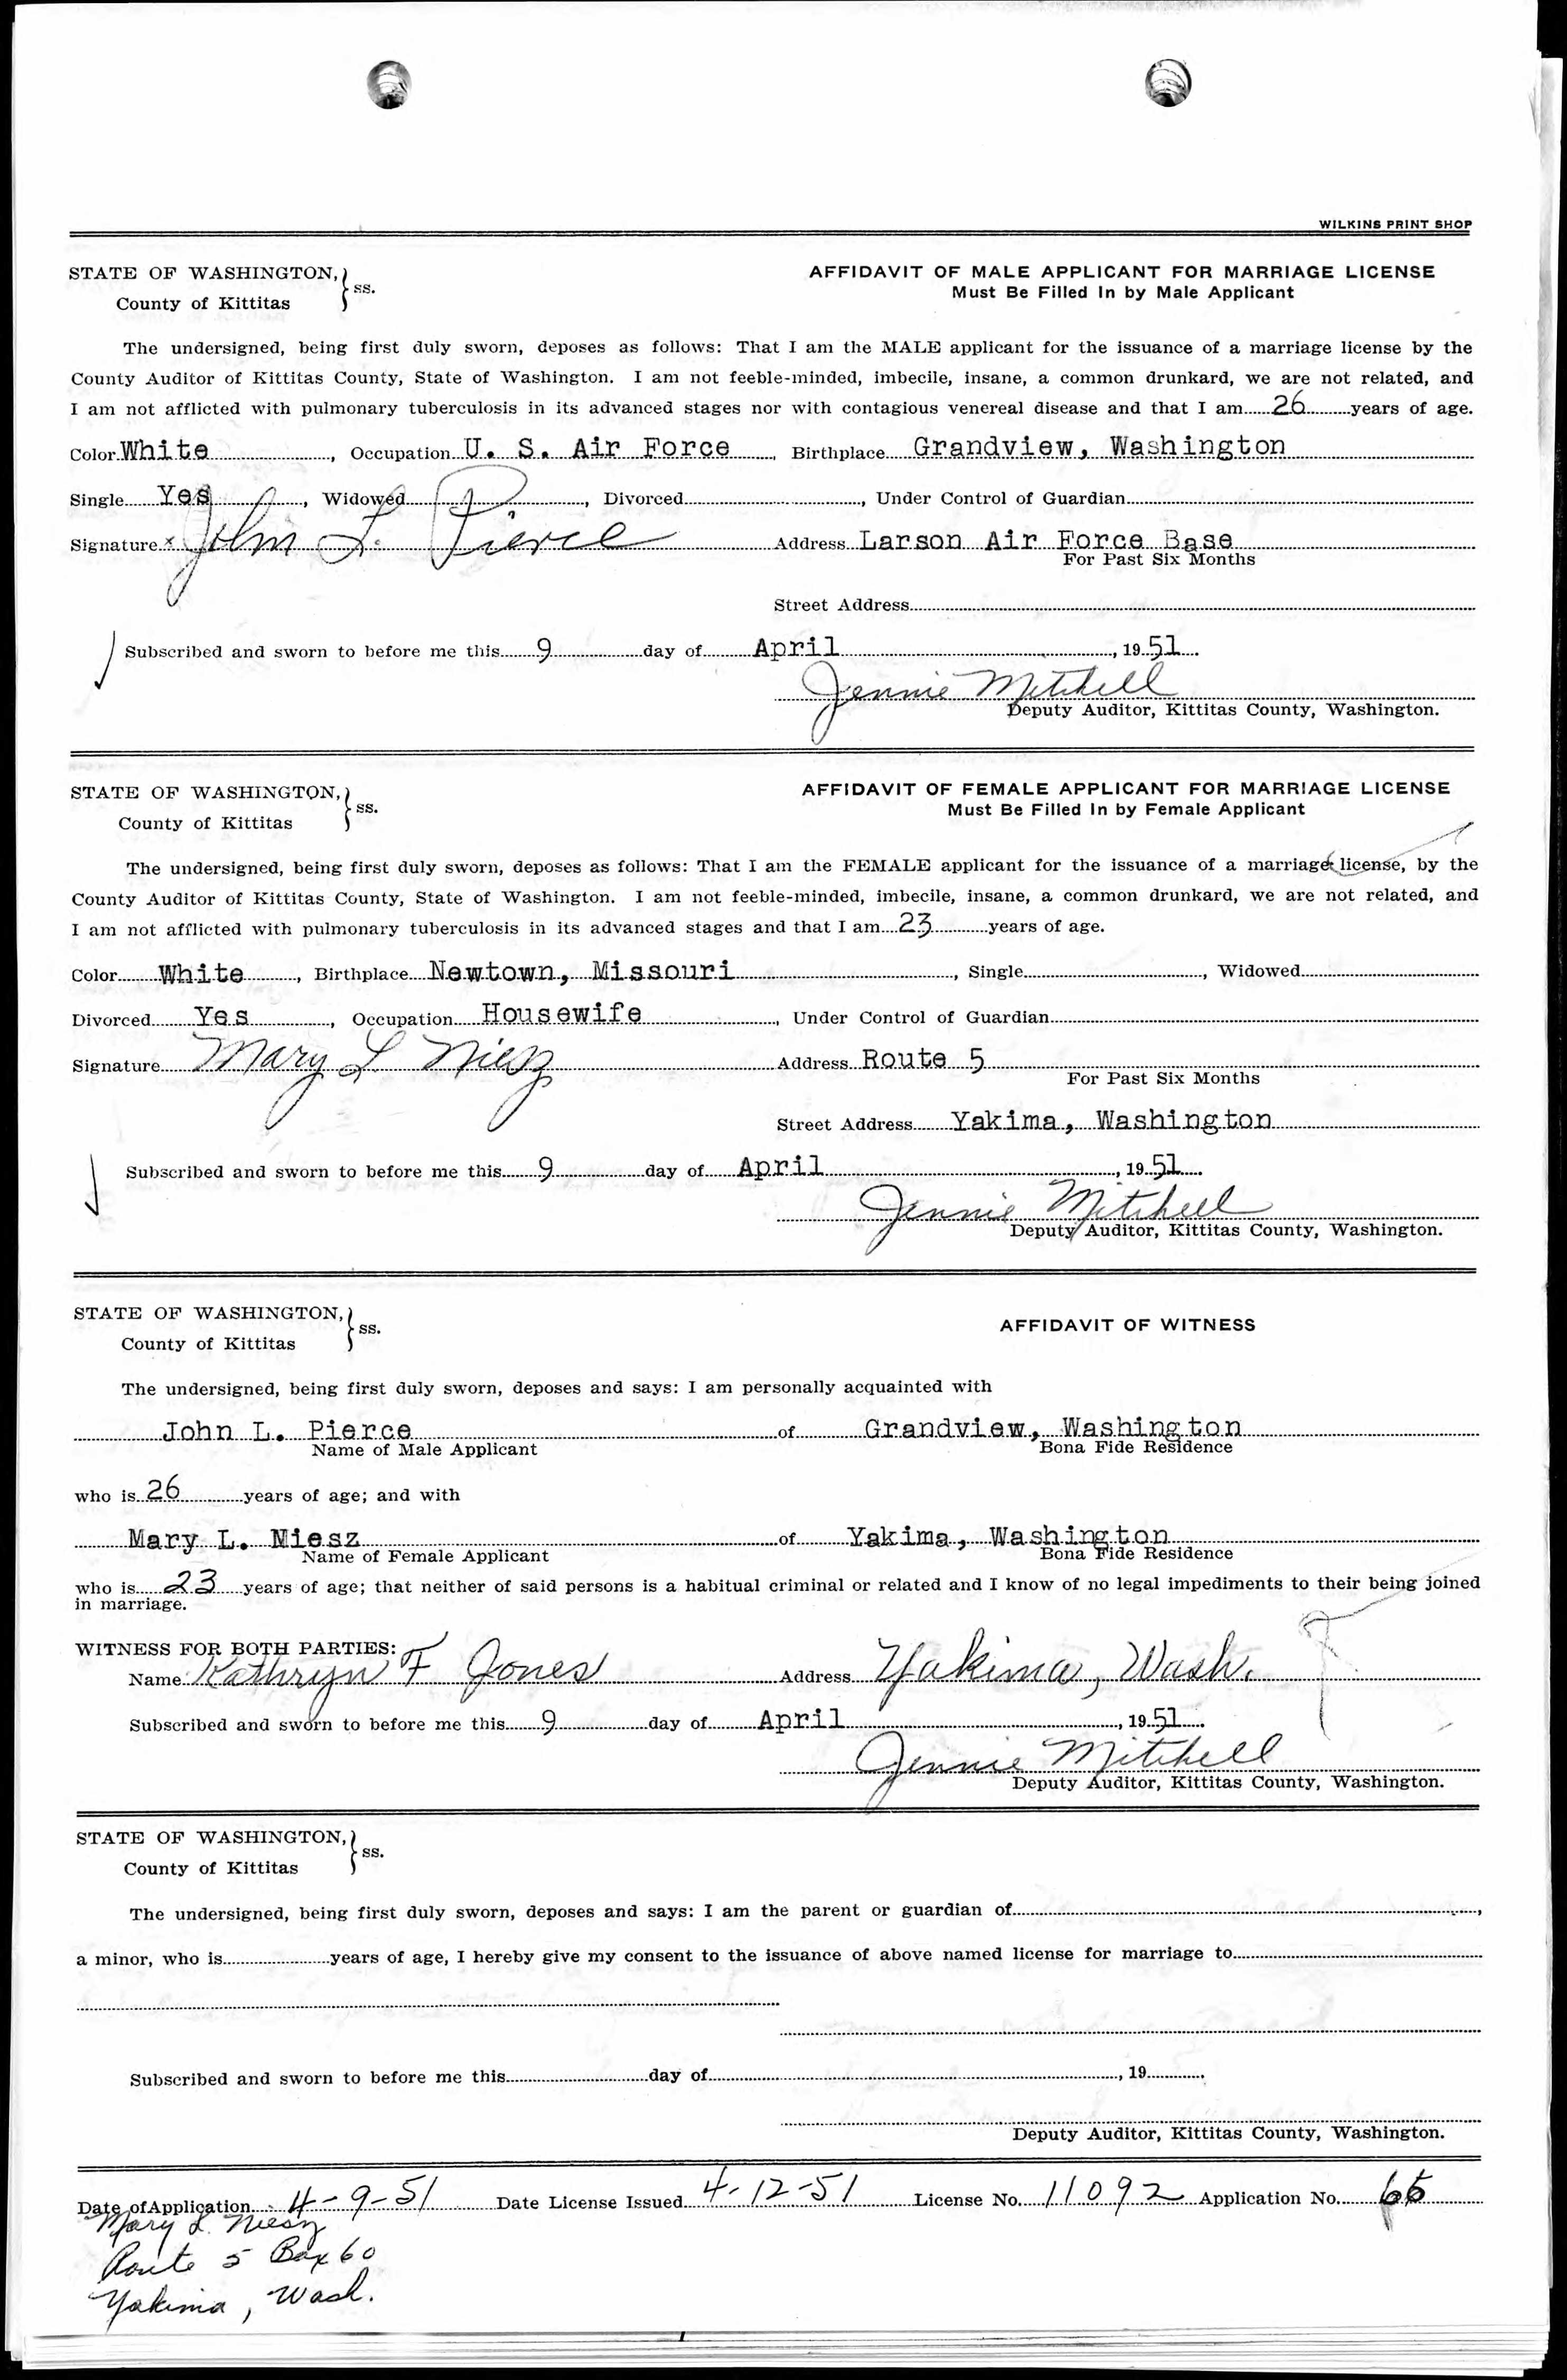 WILKINS PRINT SHOP
STATE OF WASHINGTON,
County of Kittitas } ss.
AFFIDAVIT OF MALE APPLICANT FOR MARRIAGE LICENSE
Must Be Filled In by Male Applicant
The undersigned, being first duly sworn, deposes as follows: That I am the MALE applicant for the issuance of a marriage license by the
County Auditor of Kittitas County, State of Washington. I am not feeble-minded, imbecile, insane, a common drunkard, we are not related, and
I am not afflicted with pulmonary tuberculosis in its advanced stages nor with contagious venereal disease and that I am 26 years of age.
Color White, Occupation U. S. Air Force, Birthplace Grandview, Washington
Single Yes, Widowed, Divorced, Under Control of Guardian
Signature x John L. Pierce Address Larson Air Force Base
For Past Six Months
Street Address
Subscribed and sworn to before me this 9 day of April, 1951
Jennie Mitchell
Deputy Auditor, Kittitas County, Washington.
STATE OF WASHINGTON,
County of Kittitas } ss.
AFFIDAVIT OF FEMALE APPLICANT FOR MARRIAGE LICENSE
Must Be Filled In by Female Applicant
The undersigned, being first duly sworn, deposes as follows: That I am the FEMALE applicant for the issuance of a marriage license, by the
County Auditor of Kittitas County, State of Washington. I am not feeble-minded, imbecile, insane, a common drunkard, we are not related, and
I am not afflicted with pulmonary tuberculosis in its advanced stages and that I am 23 years of age.
Color White, Birthplace Newtown, Missouri, Single, Widowed
Divorced Yes, Occupation Housewife, Under Control of Guardian
Signature Mary L Niesz Address Route 5
For Past Six Months
Street Address Yakima, Washington
Subscribed and sworn to before me this 9 day of April, 1951
Jennie Mitchell
Deputy Auditor, Kittitas County, Washington.
STATE OF WASHINGTON,
County of Kittitas } ss.
AFFIDAVIT OF WITNESS
The undersigned, being first duly sworn, deposes and says: I am personally acquainted with
John L. Pierce of Grandview, Washington
Name of Male Applicant Bona Fide Residence
who is 26 years of age; and with
Mary L. Niesz of Yakima, Washington
Name of Female Applicant Bona Fide Residence
who is 23 years of age; that neither of said persons is a habitual criminal or related and I know of no legal impediments to their being joined
in marriage.
WITNESS FOR BOTH PARTIES:
Name Kathryn F Jones Address Yakima, Wash.
Subscribed and sworn to before me this 9 day of April, 1951
Jennie Mitchell
Deputy Auditor, Kittitas County, Washington.
STATE OF WASHINGTON,
County of Kittitas } ss.
The undersigned, being first duly sworn, deposes and says: I am the parent or guardian of,
a minor, who is years of age, I hereby give my consent to the issuance of above named license for marriage to
Subscribed and sworn to before me this day of, 19
Deputy Auditor, Kittitas County, Washington.
Date of Application 4-9-51 Date License Issued 4-12-51 License No. 11092 Application No.
Mary L. Niesz
Route 5 Box 60
Yakima, Wash.